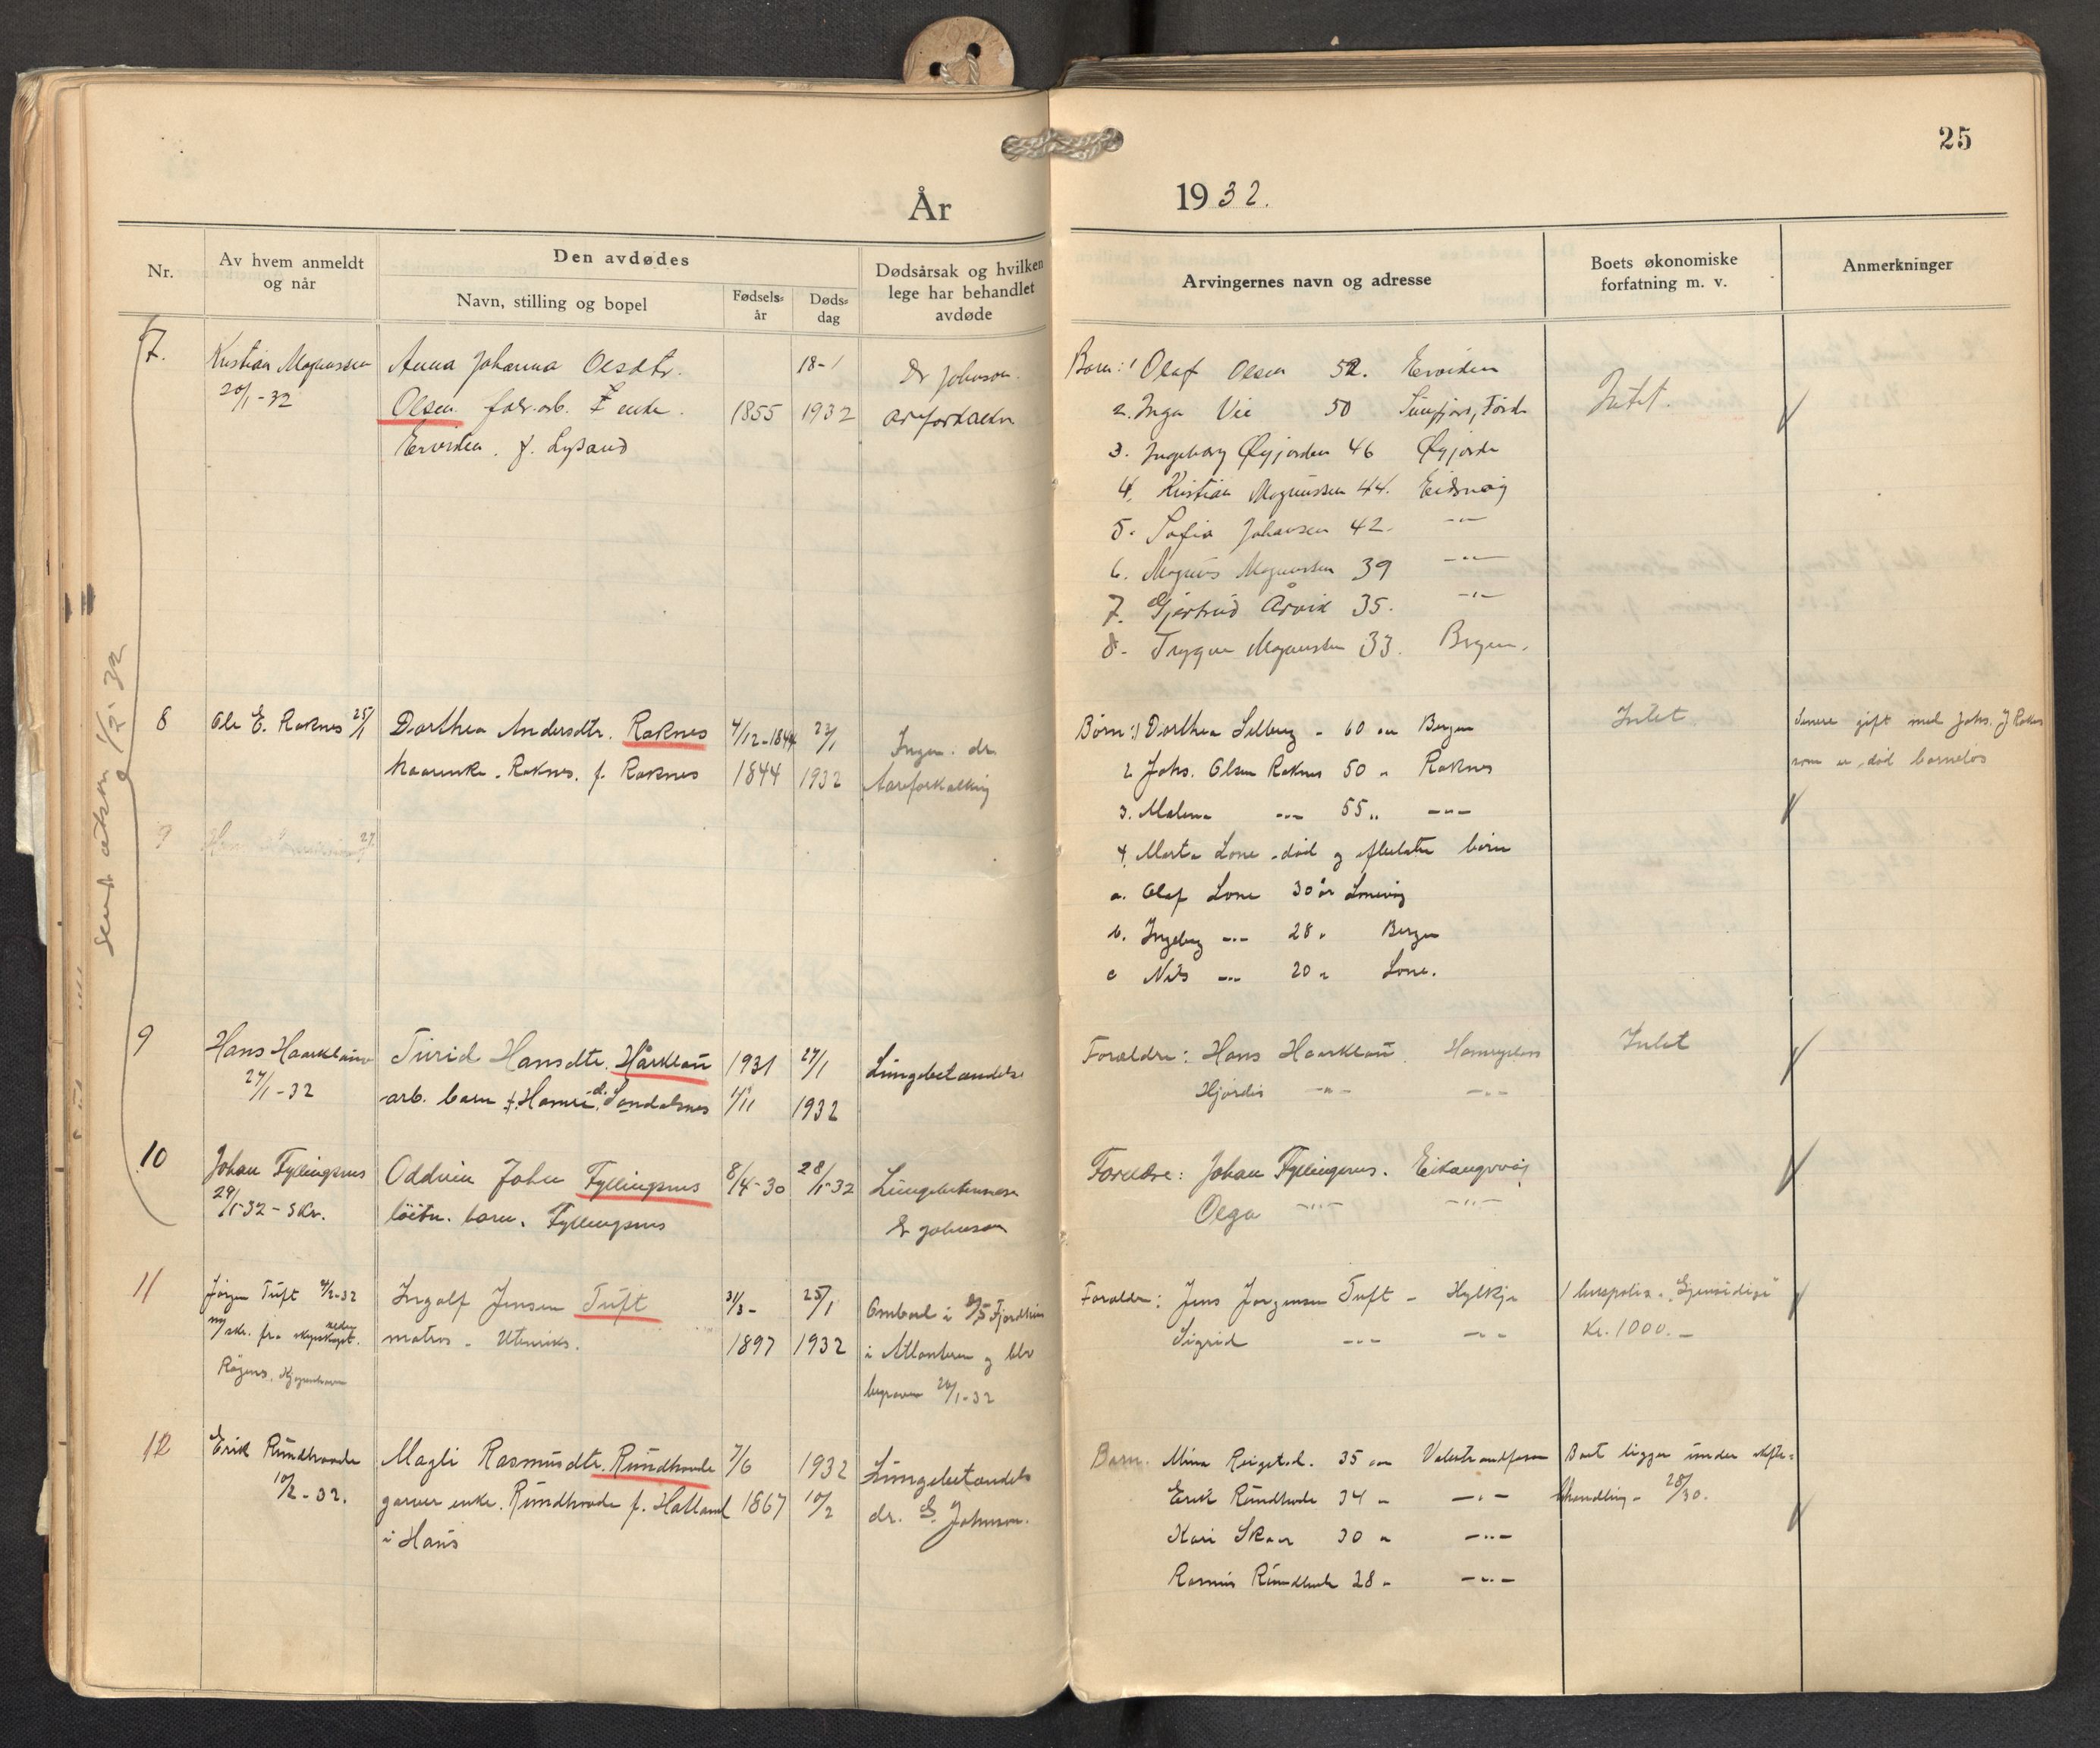 25
År 1932.
Nr.
Av hvem anmeldt
og når
Den avdødes
Navn, stilling og bopel
Fødsels-
år
Døds-
dag
Dødsårsak og hvilken
lege har behandlet
avdøde
Arvingernes navn og adresse
Boets økonomiske
forfatning m. v.
Anmerkninger
7.
Kristian Magnussen
20/1-32
Anna Johanna Olsdtr.
Olsen fabr.arb. enke.
Ervikén. f.
1855
18-1
1932
Dr Johnson.
Barn: 1 Olaf Olsen 52. Erviken
2. Inga Vie 50 Førde
3. Ingeborg Øgjorden 46 Øgjorde
4. Kristian Magnussen 44. Eidsvåg
5. Sofia Johansen 42. -"-
6. Magnus Magnussen 39 -"-
7. Gjertrud Årvik 35. -"-
8. Trygve Magnussen 33. Bergen.
Intet.
8
Ole E. Raknes 25/1
Dorthea Andersdtr. Raknes
kaarenke. Raknes. f. Raknes
4/12-1844
1844
23/1
1932
Ingen dr.
Aareforkalkning
Børn: 1) Dorthea Selberg - 60 aar Bergen
2 Johs. Olsen Raknes 50 " Raknes
3. Malena -"- 55 " -"-
4. Marta Lone - død og efterlater børn
a. Olaf Lone 30 år Lonevåg
b. Ingeborg -"- 28 " Bergen
c Nils -"- 20 " Lone.
Intet
Senere gift med Johs. J Raknes
som er død barnløs
9
9
Hans Haarklau
27/1-32
Turid Hansdtr. Hårklau
arb. barn
1931
1/11
27/1
1932
Lungebetændelse
Forældre: Hans Haarklau
Hjørdis -"- -"-
Intet
10
Johan Fyllingsnes
29/1-32 - skr.
Oddvin John Fyllingsnes
barn. Fyllingsnes
8/4-30
28/1-32
Lungebetennelse
Dr Johnson
Foreldre: Johan Fyllingsnes. Eikangervåg
Olga -"- -"-
11
Jørgen Tuft 4/2-32
Ingolf Jensen Tuft
matros - Utenriks.
31/3-
1897
25/1
1932
Ombord i S/S Fjordheim
i Atlanteren og blev
begraven 26/1-32
Forældre: Jens Jørgensen Tuft - Hylkje
Sigrid -"- -"-
1 livspolise "Gjensidige"
Kr. 1000.-
12
Erik Rundhovde
10/2-32.
Magli Rasmusdtr. Rundhovde
garver enke. Rundhovde f. Hatland
i Haus
7/6
1867
1932
10/2
Lungebetændelse
dr. G. Johnson.
Barn. Mina Ringstad. 35 aar Valestrandfossen
Erik Rundhovde 34 " -"-
Kari Skaar 30 " -"-
Rasmus Rundhovde 28 " -"-
Boet ligger under skifte-
behandling - 28/30.
1/2-32